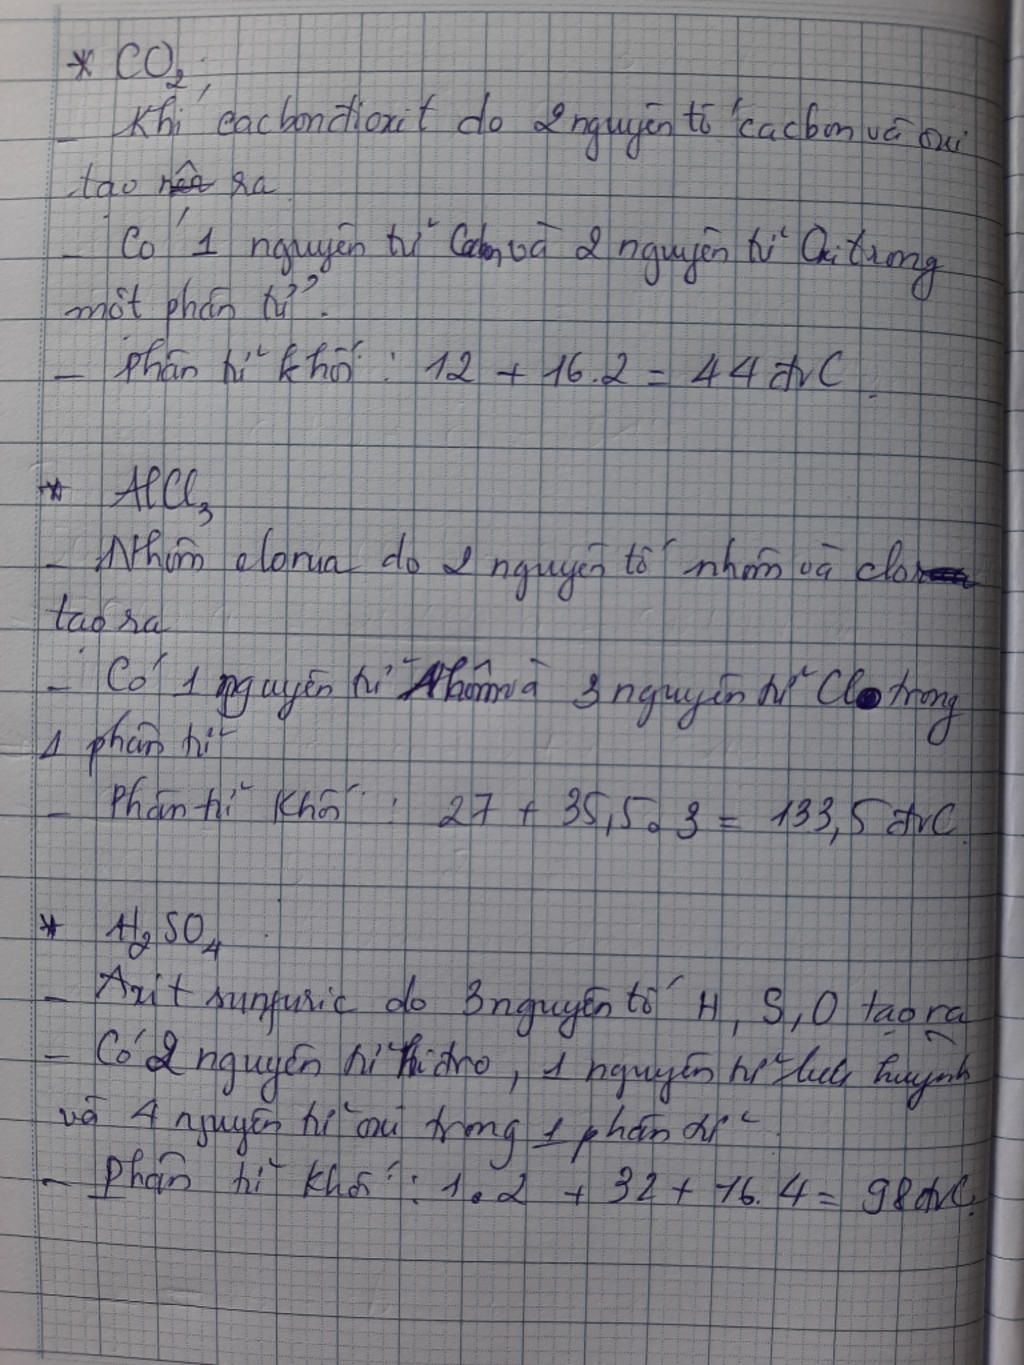 * CO₂:
- Khí cacbonđioxit do 2 nguyên tố cacbon và oxi
tạo ra
- Có 1 nguyên tử Cacbon và 2 nguyên tử Oxi trong
một phân tử.
- Phân tử khối: 12 + 16.2 = 44 đvC.
* AlCl₃
- Nhôm clorua do 2 nguyên tố nhôm và clo
tạo ra
- Có 1 nguyên tử Nhôm và 3 nguyên tử Cl trong
1 phân tử
- Phân tử khối: 27 + 35,5.3 = 133,5 đvC.
* H₂SO₄
- Axit sunfuric do 3 nguyên tố H, S, O tạo ra
- Có 2 nguyên tử hiđro, 1 nguyên tử lưu huỳnh
và 4 nguyên tử oxi trong 1 phân tử.
- Phân tử khối: 1.2 + 32 + 16.4 = 98 đvC.